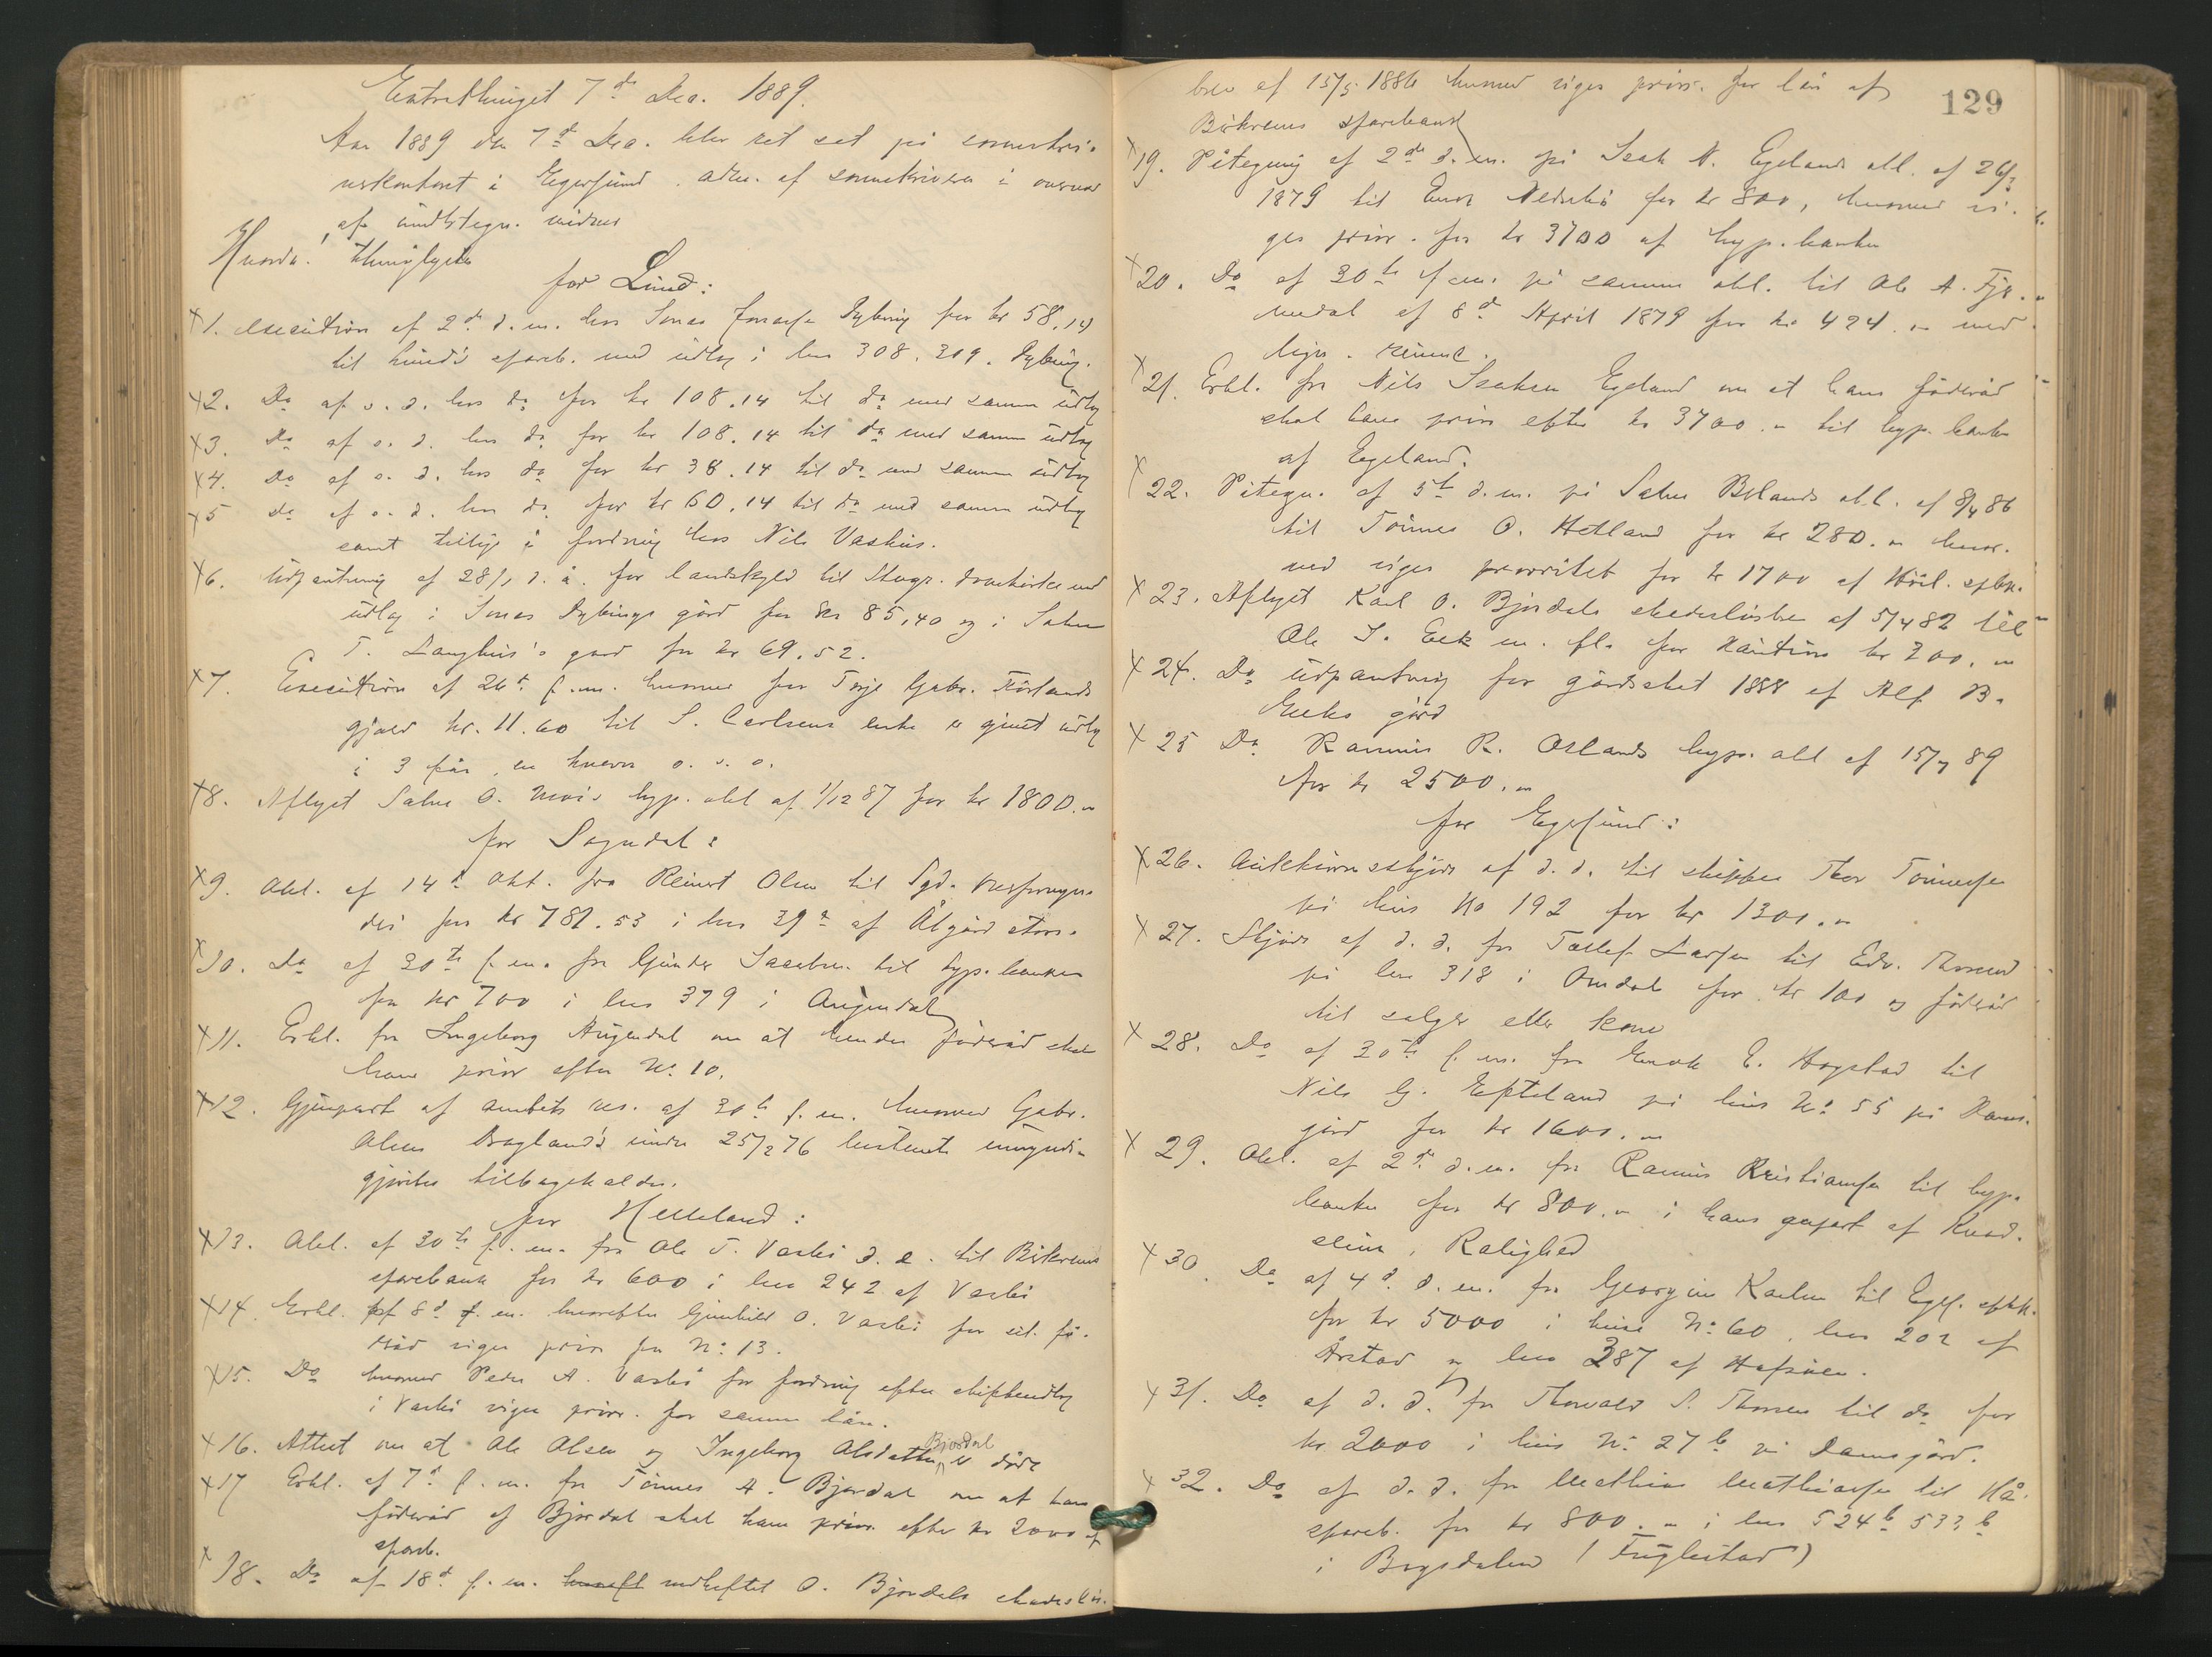 Extrathinget 7d Dec. 1889.
Aar 1889 den 7d Dec. blev ret sat på sorenskri-
verkontoret i Egersund adm. af sorenskriveren i overvær
af undertegn. vidner
Hvorda! thinglyst
for Lund:
x1. Execution af 2d d.m. hos Jonas Dybing for kr 58,14
til Lund's spareb. med udlæg i lnr 308. 309. Dybing.
x2. Do af s. d. hos do for kr 108.14 til do med samme udlæg
x3. Do af s. d. hos do for kr 108.14 til do med samme udlæg
x4. Do af s. d. hos do for kr 38.14 til do med samme udlæg
x5 Do af s. d. hos do for kr 60.14 til do med samme udlæg
samt tillige i fordring hos Nils Vashus.
x6. Udpantning af 28/ d. å. for landskyld til med
udlæg i Jonas Dybings gård for kr 85,40 og i Salve
T. Langhus's gård for kr 69.52.
x7. Execution af 26d f.m. hvorved for Terje Gabr. Hovlands
gjæld kr. 11.60 til S. Carlsens enke er gjort udlæg
i 3 får, en kværn o. s. v.
x8. Aflyst Salve O. Moi's hyp. obl af 1/12 87 for kr 1800.
for Sogndal:
x9. Obl. af 14d Okt. fra Reinert Olsen til Sgd.
for kr 781.53 i lnr 39a af Ålgård
x10. Do af 30te f.m. fra Gunder Jacobsen til hyp. banken
for kr 700 i lnr 379 i Augendal
x11. Erkl. fra Ingeborg Augendal om at hendes føderåd skal
have prior efter No 10.
x12. Gjenpart af amtets res. af 30te f.m. hvorved Gabr.
Olsen Dragland's under 25/2 76 besluttede umyndig-
gjørelse tilbagekaldes.
for Helleland:
x13. Obl. af 30te f.m. fra Ole T. Vasbø d. e. til Birkrems
sparebank for kr 600 i lnr 242 af Vasbø
x14. Erkl. af 8d f.m. hvorefter Gunhild O. Vasbø for sit fø-
deråd viger prior for No 13.
x15. Do hvorved Peder A. Vasbø for fordring efter skifteudlæg
i Vasbø viger prior. for samme lån.
x16. Attest om at Ole Olsen og Ingeborg Olsdatter Bjordal er døde
x17 Erkl. af 7d f.m. fra Tønnes A. Bjordal om at hans
føderåd af Bjordal skal have prior efter kr 2000 af
spareb.
x18. Do af 18d f.m. vedheftet O. Bjordals skadesløs-
129
brev af 15/5 1886 hvorved viger prior. for lån af
Birkrems sparebank
x19. Påtegning af 2d d.m. på Isak N. Egelands obl. af 26/3
1879 til Enok Nedrebø for kr 800, hvorved vi-
ges prior. for kr 3700 af hyp. banken
x20. Do af 30te f.m. på samme obl. til Ole A. Fjer-
medal af 8d April 1879 for kr 424. med
lign. rømme.
x21. Erkl. fra Nils Isaksen Egeland om at hans føderåd
skal have prior efter kr 3700. til hyp. banken
af Egeland.
x22. Påtegn. af 5te d.m. på Salve Bilands obl. af 8/4 86
til Tønnes O. Hetland for kr 280. hvor-
ved viges prioritet for kr 1700 af spbk.
x23. Aflyst Karl O. Bjordals skadesløsbr. af 5/4 82 til
Ole J. Eek m. fl. for kaution kr 200.
x24. Do udpantning for gårdskat 1888 af Alf B.
Eeks gård
x25 Do Rasmus R. Oslands hyp. obl af 15/7 89
for kr 2500.
for Egersund:
x26. Auktionsskjøde af d. d. til skipper Thor Tønnesen
på hus No 192 for kr 1300.
x27. Skjøde af d. d. fra Tollef Larsen til Edv. Thorsen
på lnr 318 i Omdal for kr 100 og føderåd
til sælger eller kone
x28. Do af 30te f.m. fra Enok E. Hogstad til
Nils G. Epteland på hus No 55 på Dams-
gård for kr 1600.
x29. Obl. af 2d d.m. fra Rasmus Kristiansen til hyp.
banken for kr 800. i hans gapart af
Rolighed
x30. Do af 4d d.m. fra Georgine Karlsen til Egs. spbk.
for kr 5000 i huse No 60. lnr 202 af
Årstad og lnr 287 af Hafsøen.
x31. Do af d. d. fra Thorvald S. Thorsen til do for
kr 2000 i hus No 27b på Damsgård.
x32. Do af d. d. fra Mathias Mathiassen til Hå
spareb. for kr 800. i lnr 524b 533b
i Bøgedalen (Fuglestad)